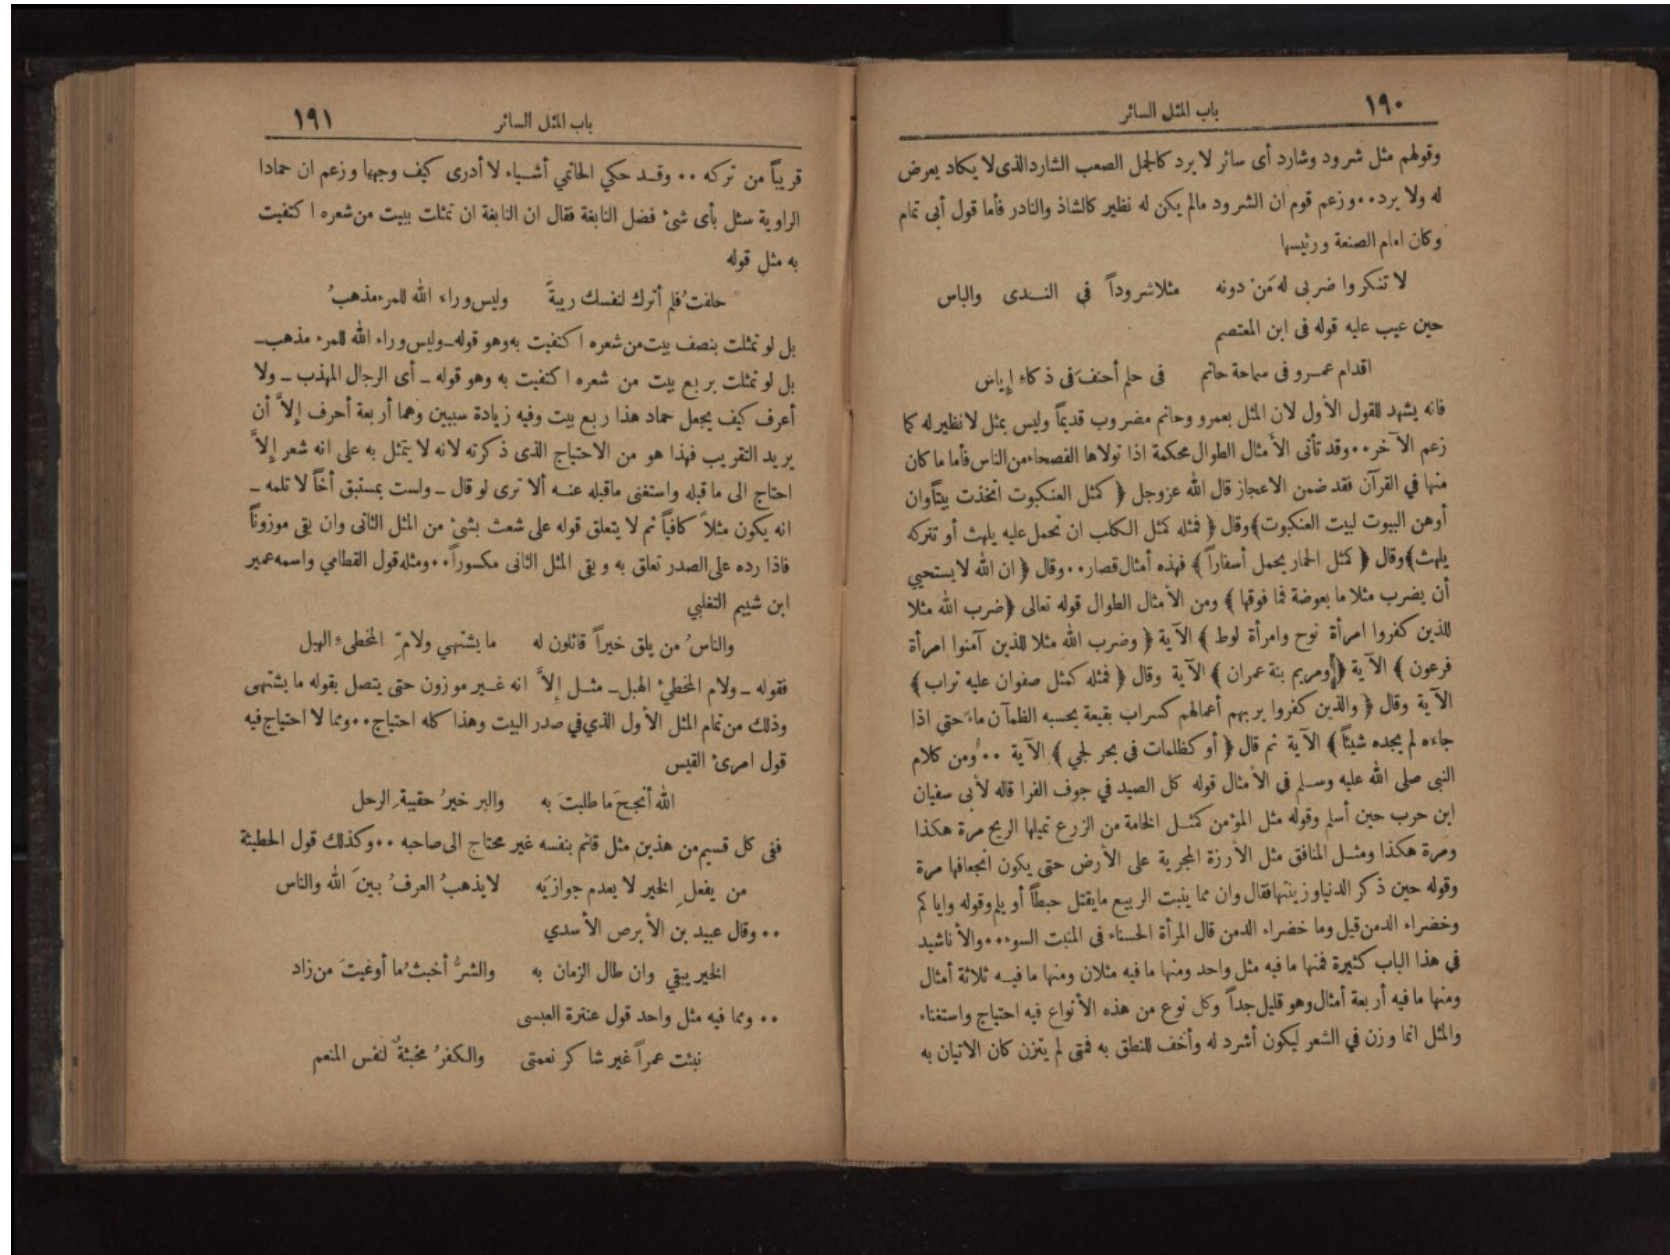 ١٩٠ باب المثل السائر
وقولهم مثل شرود وشارد أى سائر لا يرد كالجمل الصعب الشارد الذى لا يكاد يعرض
له ولا يرد ٠٠ وزعم قوم ان الشرود مالم يكن له نظير كالشاذ والنادر فأما قول أبى تمام
وكان امام الصنعة ورئيسها
لا تنكروا ضربى له مَنْ دونه مثلا شروداً في النـدى والباس
حين عيب عليه قوله فى ابن المعتصم
اقدام عمـرو فى سماحة حاتم فى حلم أحنفَ فى ذكاء إياس
فانه يشهد للقول الأول لان المثل بعمرو وحاتم مضروب قديماً وليس بمثل لا نظير له كما
زعم الآخر ٠٠ وقد تأتى الأمثال الطوال محكمة اذا تولاها الفصحاء من الناس فأما ما كان
منها في القرآن فقد ضمن الاعجاز قال الله عز وجل ﴿ كمثل العنكبوت اتخذت بيتاً وان
أوهن البيوت لبيت العنكبوت﴾ وقال ﴿ فمثله كمثل الكلب ان تحمل عليه يلهث أو تتركه
يلهث﴾ وقال ﴿ كمثل الحمار يحمل أسفاراً ﴾ فهذه أمثال قصار ٠٠ وقال ﴿ ان الله لا يستحيي
أن يضرب مثلا ما بعوضة فما فوقها ﴾ ومن الأمثال الطوال قوله تعالى ﴿ ضرب الله مثلا
للذين كفروا امرأة نوح وامرأة لوط ﴾ الآية ﴿ وضرب الله مثلا للذين آمنوا امرأة
فرعون ﴾ الآية ﴿ ومريم بنة عمران ﴾ الآية وقال ﴿ فمثله كمثل صفوان عليه تراب ﴾
الآية وقال ﴿ والذين كفروا بربهم أعمالهم كسراب بقيعة يحسبه الظمآن ماءً حتى اذا
جاءه لم يجده شيئاً ﴾ الآية ثم قال ﴿ أو كظلمات فى بحر لجي ﴾ الآية ٠٠ ومن كلام
النبى صلى الله عليه وسـلم في الأمثال قوله كل الصيد في جوف الفرا قاله لأبى سفيان
ابن حرب حين أسلم وقوله مثل المؤمن كمثـل الخامة من الزرع تميلها الريح مرة هكذا
ومرة هكذا ومثـل المنافق مثل الأرزة المجرية على الأرض حتى يكون انجعافها مرة
وقوله حين ذكر الدنيا وزينتها فقال وان مما ينبت الربيع ما يقتل حبطاً أو يلم وقوله واياكم
وخضراء الدمن قيل وما خضراء الدمن قال المرأة الحسناء فى المنبت السوء ٠٠ والأناشيد
في هذا الباب كثيرة فمنها ما فيه مثل واحد ومنها ما فيه مثلان ومنها ما فيـه ثلاثة أمثال
ومنها ما فيه أربعة أمثال وهو قليل جداً وكل نوع من هذه الأنواع فيه احتياج واستغناء
والمثل انما وزن في الشعر ليكون أشرد له وأخف للنطق به فمتى لم يتزن كان الاتيان به
باب المثل السائر ١٩١
قريباً من تركه ٠٠ وقـد حكي الحاتمي أشـياء لا أدرى كيف وجهها وزعم ان حمادا
الراوية سئل بأى شئ فضل النابغة فقال ان النابغة ان تمثلت ببيت من شعره اكتفيت
به مثل قوله
حلفتُ فلم أترك لنفسك ريبةً وليس وراء الله للمرء مذهبُ
بل لو تمثلت بنصف بيت من شعره اكتفيت به وهو قوله ـ وليس وراء الله للمرء مذهب ـ
بل لو تمثلت بربع بيت من شعره اكتفيت به وهو قوله ـ أى الرجال المهذب ـ ولا
أعرف كيف يجعل حماد هذا ربع بيت وفيه زيادة سببين وهما أربعة أحرف إلاَّ أن
يريد التقريب فهذا هو من الاحتياج الذى ذكرته لانه لا يتمثل به على انه شعر إلاَّ
احتاج الى ما قبله واستغنى ماقبله عنـه ألا ترى لو قال ـ ولست بمستبق أخاً لا تلمه ـ
انه يكون مثلاً كافياً ثم لا يتعلق قوله على شعث بشئ من المثل الثانى وان بقى موزوناً
فاذا رده على الصدر تعلق به وبقى المثل الثانى مكسوراً ٠٠ ومثله قول القطامي واسمه عمير
ابن شييم التغلبي
والناسُ من يلق خيراً قائلون له ما يشتهي ولامّ المخطىء الهبل
فقوله ـ ولام المخطئ الهبل ـ مثـل إلاَّ انه غـير موزون حتى يتصل بقوله ما يشتهى
وذلك من تمام المثل الأول الذي في صدر البيت وهذا كله احتياج ٠٠ ومما لا احتياج فيه
قول امرئ القيس
الله أنجحَ ما طلبتَ به والبر خيرُ حقيبةِ الرحل
ففى كل قسيم من هذين مثل قائم بنفسه غير محتاج الى صاحبه ٠٠ وكذلك قول الحطيئة
من يفعلِ الخير لا يعدم جوازيَه لا يذهبُ العرفُ بينَ الله والناس
٠٠ وقال عبيد بن الأبرص الأسدي
الخير يبقي وان طال الزمان به والشرُّ أخبثُ ما أوعيتَ من زاد
٠٠ ومما فيه مثل واحد قول عنترة العبسى
نبئت عمراً غير شاكر نعمتى والكفرُ مخبثةٌ لنفس المنعم